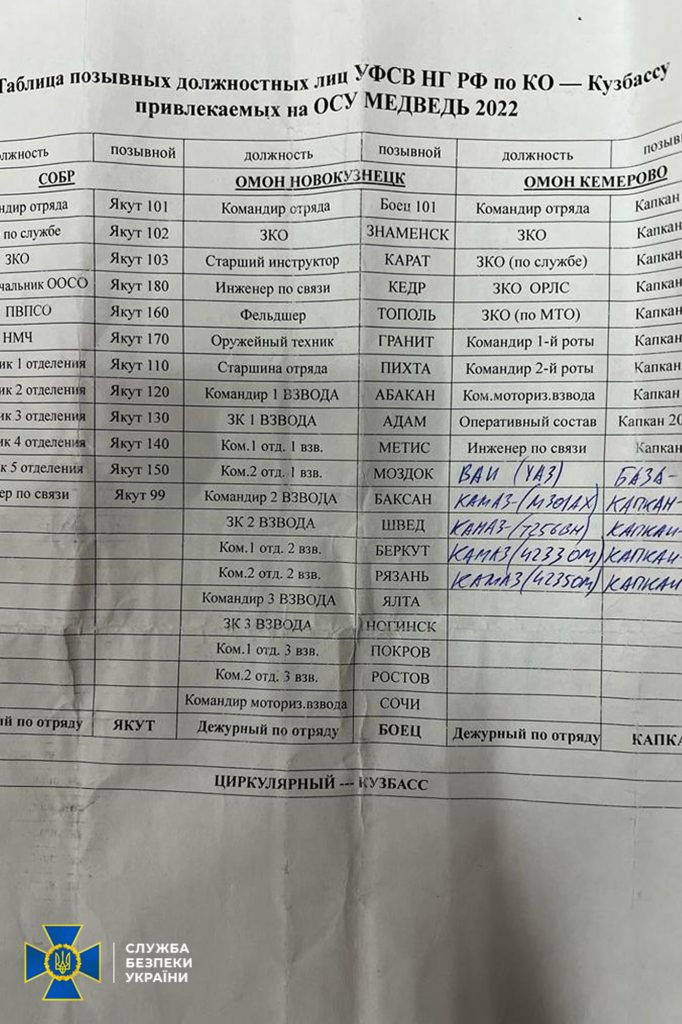 Таблица позывных должностных лиц УФСВ НГ РФ по КО — Кузбассу
привлекаемых на ОСУ МЕДВЕДЬ 2022
олжность позывной должность позывной должность позывн
СОБР ОМОН НОВОКУЗНЕЦК ОМОН КЕМЕРОВО
ндир отряда Якут 101 Командир отряда Боец 101 Командир отряда Капкан
по службе Якут 102 ЗКО ЗНАМЕНСК ЗКО Капкан
ЗКО Якут 103 Старший инструктор КАРАТ ЗКО (по службе) Капкан
чальник ООСО Якут 180 Инженер по связи КЕДР ЗКО ОРЛС Капкан
ПВПСО Якут 160 Фельдшер ТОПОЛЬ ЗКО (по МТО) Капкан
НМЧ Якут 170 Оружейный техник ГРАНИТ Командир 1-й роты Капкан
ик 1 отделения Якут 110 Старшина отряда ПИХТА Командир 2-й роты Капкан
ик 2 отделения Якут 120 Командир 1 ВЗВОДА АБАКАН Ком.моториз.взвода Капкан
ик 3 отделения Якут 130 ЗК 1 ВЗВОДА АДАМ Оперативный состав Капкан 20
ик 4 отделения Якут 140 Ком.1 отд. 1 взв. МЕТИС Инженер по связи Капкан
к 5 отделения Якут 150 Ком.2 отд. 1 взв. МОЗДОК ВАИ (УАЗ) БАЗА-
ер по связи Якут 99 Командир 2 ВЗВОДА БАКСАН КАМАЗ-(М301АХ) КАПКАН-
ЗК 2 ВЗВОДА ШВЕД КАМАЗ-(Т256ВН) КАПКАН-
Ком.1 отд. 2 взв. БЕРКУТ КАМАЗ(4233ОМ) КАПКАН-
Ком.2 отд. 2 взв. РЯЗАНЬ КАМАЗ(4235ОМ) КАПКАН
Командир 3 ВЗВОДА ЯЛТА
ЗК 3 ВЗВОДА НОГИНСК
Ком.1 отд. 3 взв. ПОКРОВ
Ком.2 отд. 3 взв. РОСТОВ
Командир моториз.взвода СОЧИ
ый по отряду ЯКУТ Дежурный по отряду БОЕЦ Дежурный по отряду КАПКА
ЦИРКУЛЯРНЫЙ --- КУЗБАСС
СЛУЖБА
БЕЗПЕКИ
УКРАЇНИ